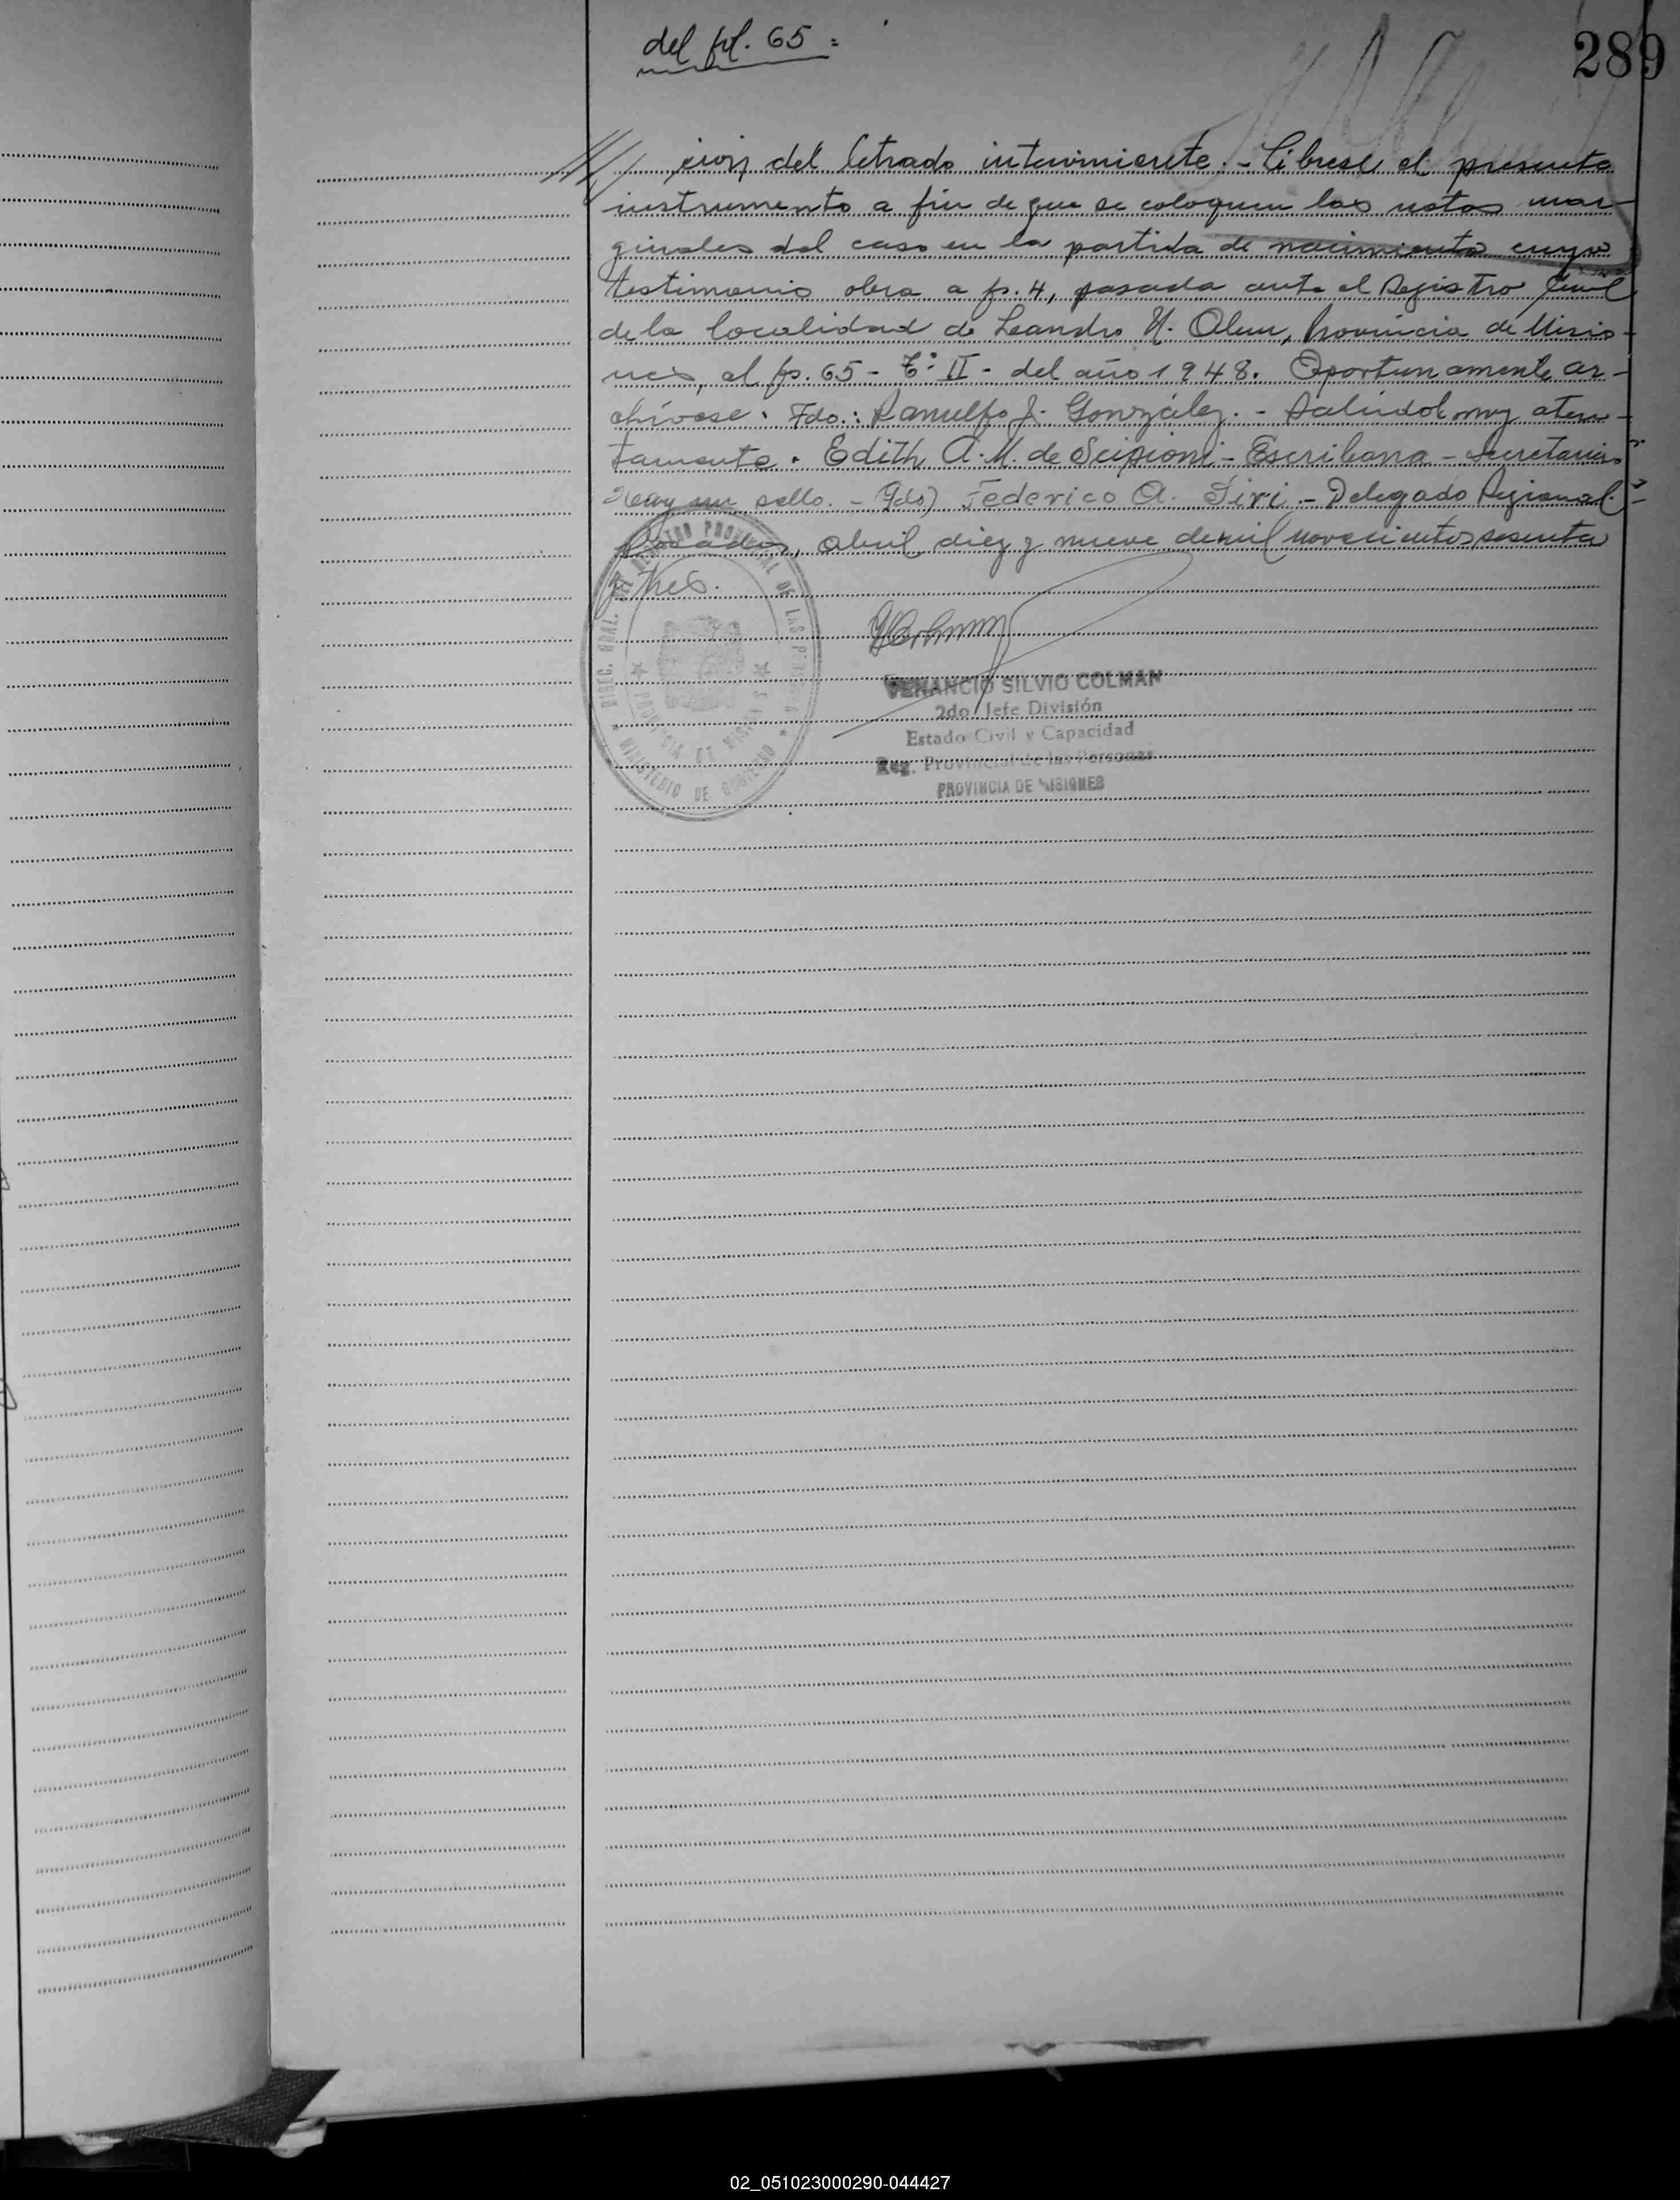 del fol. 65 =
289
/// cion del letrado interviniente. - Líbrese el presente
instrumento a fin de que se coloquen las notas mar-
ginales del caso en la partida de nacimiento cuyo
testimonio obra a fs. 4, pasada ante el Registro Civil
de la localidad de Leandro N. Alem, Provincia de Misio-
nes, al fo. 65 - T° II - del año 1948. Oportunamente ar-
chívese. Fdo.: Ranulfo J. González. - Salúdol muy aten-
tamente. Edith A. M. de Scipioni - Escribana - Secretaria.
Hay un sello. - Fdo) Federico A. Siri - Delegado Regional.
Posadas, abril diez y nueve de mil novecientos sesenta
y tres.
DIREC. GRAL. DEL REGISTRO PROVINCIAL DE LAS PERSONAS
PROVINCIA DE MISIONES
MINISTERIO DE GOBIERNO
VENANCIO SILVIO COLMAN
2do Jefe División
Estado Civil y Capacidad
Reg. Provincial de las Personas
PROVINCIA DE MISIONES
02_051023000290-044427